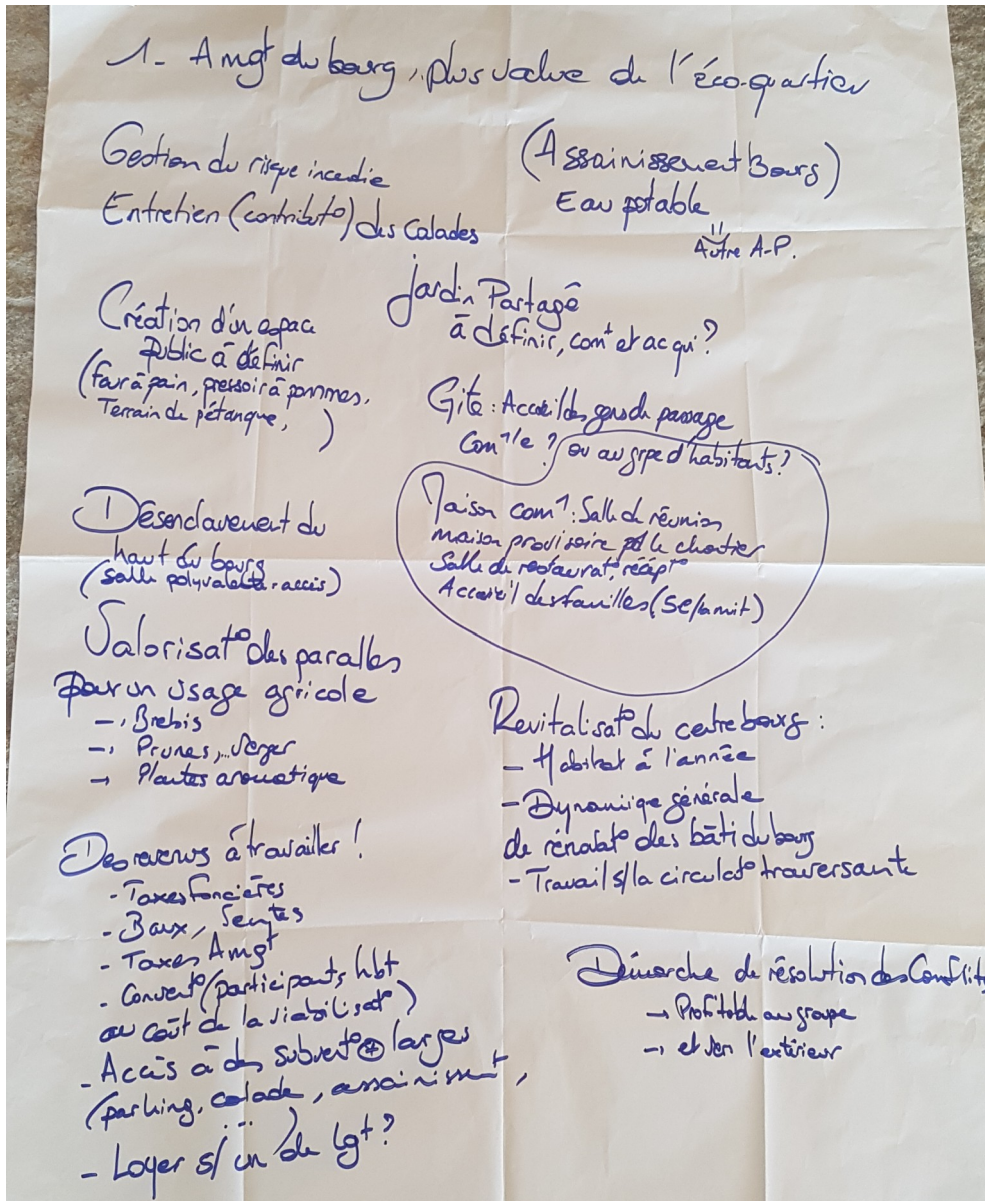 1- Amgt du bourg, plus value de l'éco-quartier
Gestion du risque incendie
Entretien (contributo) des Calades
(Assainissement Bourg)
Eau potable
"
Autre A-P.
Jardin Partagé
à définir, comt et ac qui?
Création d'un espace
public à définir
(four à pain, pressoir à pommes,
Terrain de pétanque, )
Gite : Accueil des gens de passage
Com1/e ? ou au grpe d'habitants?
Maison com1 : Salle de réunion
maison provisoire pdt le chantier
Salle de restaurato, récepto
Accueil des familles (se/amit)
Désenclavement du
haut du bourg
(salle polyvalente - accès)
Valorisato des paralles
pour un usage agricole
-, Brebis
-, Prunes,... Verger
→ Plantes aromatique
Revitalisato du centre bourg :
- Habitat à l'année
- Dynamiqe générale
de rénovato des bâti du bourg
- Travail s/la circulato traversante
Des revenus à travailler !
- Taxes foncières
- Baux, Ventes
- Taxes Amgt
- Convento (participants hbt
au coût de la viabilisato)
- Accès à des subvento ⊕ larges
(parking, calade, assainissent,
...)
- Loyer s/ un de lgt ?
Démarche de résolution des Conflits
→ Profitable au groupe
→ et vers l'extérieur